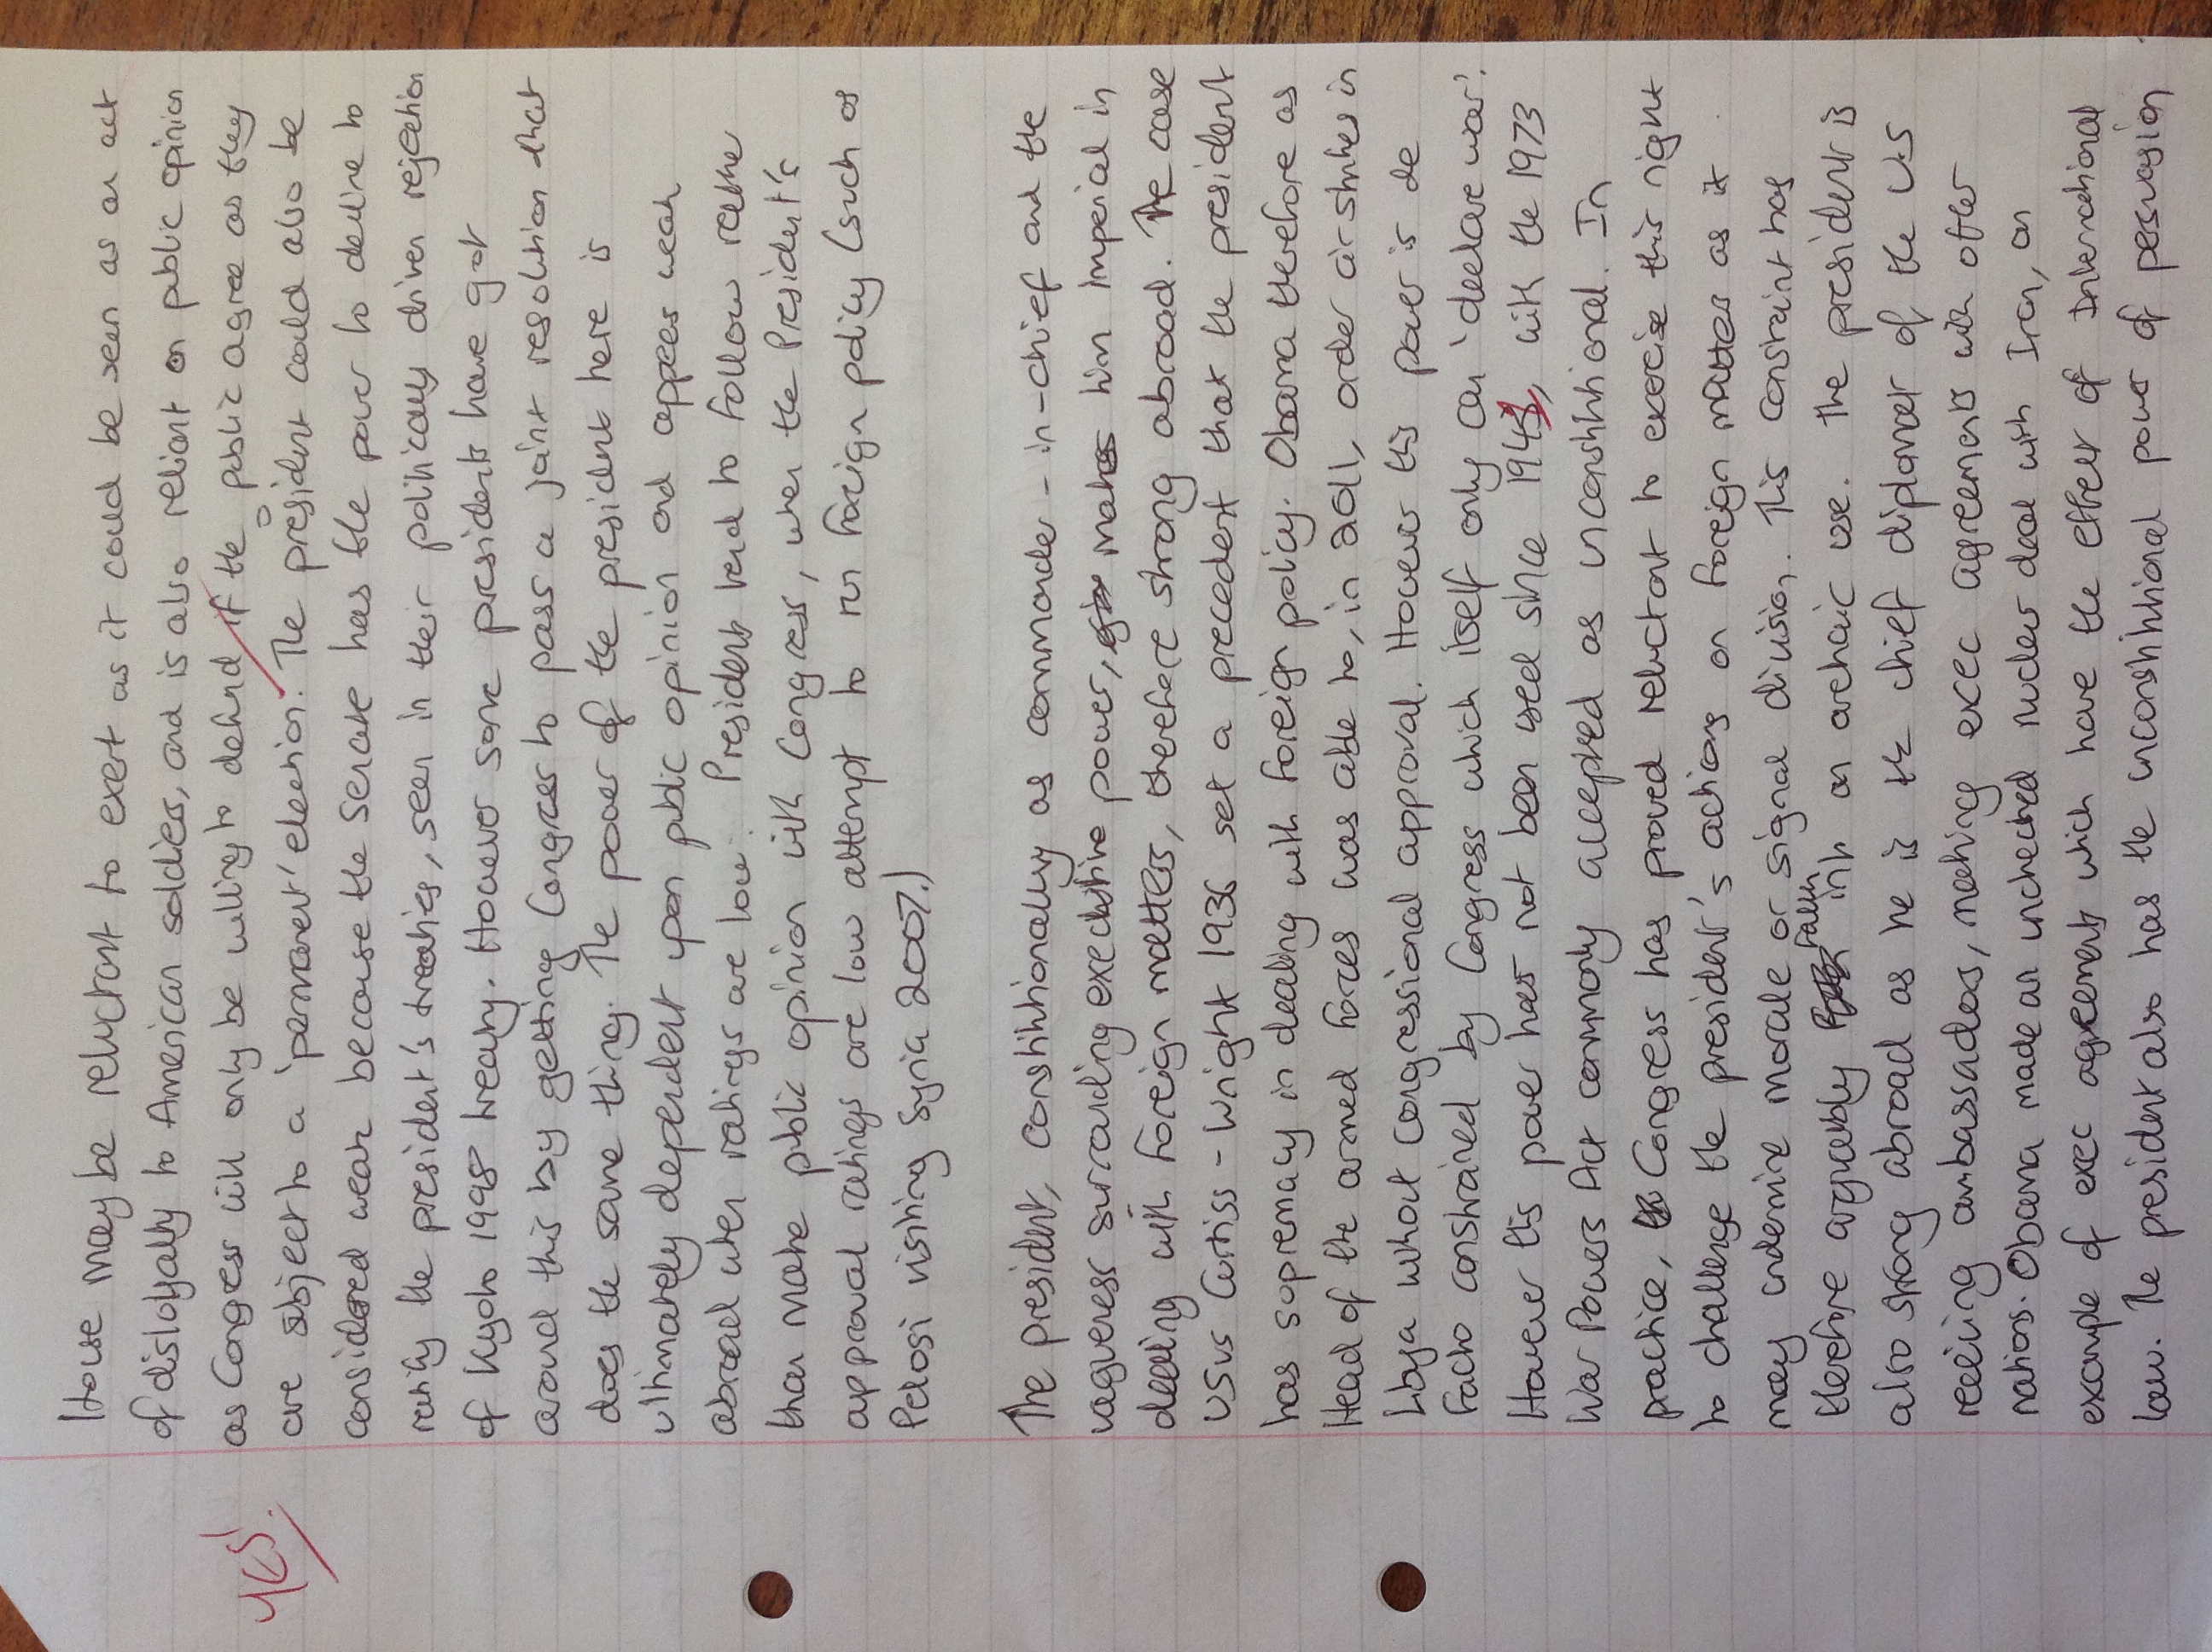 House may be reluctant to exert as it could be seen as an act
of disloyalty to American soldiers, and is also reliant on public opinion
as Congress will only be willing to defend if the public agree as they
are subject to a 'permanent' election. The president could also be
considered weak because the Senate has the power to decline to
ratify the president's treaties, seen in their politically driven rejection
of Kyoto 1998 treaty. However some presidents have got
around this by getting Congress to pass a joint resolution that
does the same thing. The power of the president here is
ultimately dependent upon public opinion and appears weak
abroad when ratings are low. Presidents tend to follow rather
than make public opinion with Congress, when the President's
approval ratings are low attempt to run foreign policy (such as
Pelosi visiting Syria 2007.)
YES!
The president, constitutionally as commander-in-chief and the
vagueness surrounding executive power, makes him imperial in
dealing with foreign matters, therefore strong abroad. The case
US vs Curtiss-Wright 1936 set a precedent that the president
has supremacy in dealing with foreign policy. Obama therefore as
Head of the armed forces was able to, in 2011, order air strikes in
Libya without congressional approval. However this power is de
facto constrained by Congress which itself only can 'declare war'.
However this power has not been used since 1941, with the 1973
War Powers Act commonly accepted as unconstitutional. In
practice, Congress has proved reluctant to exercise this right
to challenge the president's actions on foreign matters as it
may undermine morale or signal division. This constraint has
therefore arguably fallen into an archaic use. The president is
also strong abroad as he is the chief diplomat of the US
receiving ambassadors, making exec agreements with other
nations. Obama made an unchecked nuclear deal with Iran, an
example of exec agreements which have the effect of International
law. The president also has the unconstitutional power of persuasion